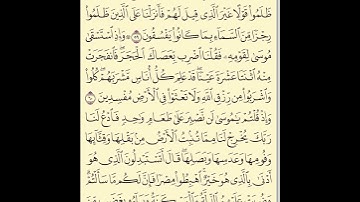 ظَلَمُوا۟ قَوْلًا غَيْرَ ٱلَّذِى قِيلَ لَهُمْ فَأَنزَلْنَا عَلَى ٱلَّذِينَ ظَلَمُوا۟
رِجْزًا مِّنَ ٱلسَّمَآءِ بِمَا كَانُوا۟ يَفْسُقُونَ ٥٩ وَإِذِ ٱسْتَسْقَىٰ
مُوسَىٰ لِقَوْمِهِۦ فَقُلْنَا ٱضْرِب بِّعَصَاكَ ٱلْحَجَرَ فَٱنفَجَرَتْ
مِنْهُ ٱثْنَتَا عَشْرَةَ عَيْنًا قَدْ عَلِمَ كُلُّ أُنَاسٍ مَّشْرَبَهُمْ كُلُوا۟
وَٱشْرَبُوا۟ مِن رِّزْقِ ٱللَّهِ وَلَا تَعْثَوْا۟ فِى ٱلْأَرْضِ مُفْسِدِينَ ٦٠
وَإِذْ قُلْتُمْ يَٰمُوسَىٰ لَن نَّصْبِرَ عَلَىٰ طَعَامٍ وَٰحِدٍ فَٱدْعُ لَنَا
رَبَّكَ يُخْرِجْ لَنَا مِمَّا تُنۢبِتُ ٱلْأَرْضُ مِنۢ بَقْلِهَا وَقِثَّآئِهَا
وَفُومِهَا وَعَدَسِهَا وَبَصَلِهَا قَالَ أَتَسْتَبْدِلُونَ ٱلَّذِى هُوَ
أَدْنَىٰ بِٱلَّذِى هُوَ خَيْرٌ ٱهْبِطُوا۟ مِصْرًا فَإِنَّ لَكُم مَّا سَأَلْتُمْ